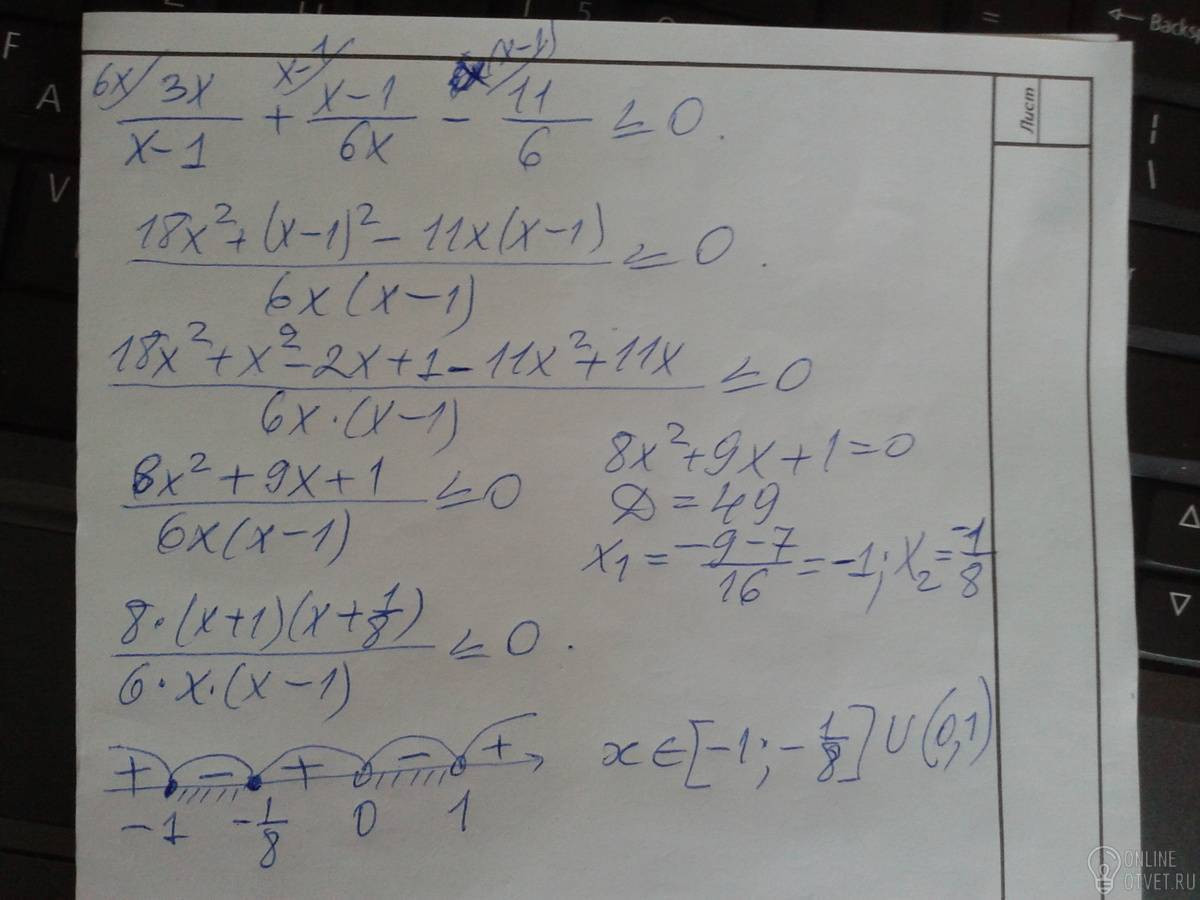 6x/ 3x/(x-1) + x-1/ (x-1)/6x - (x-1)/ 11/6 ≤ 0.
(18x² + (x-1)² - 11x(x-1))/(6x(x-1)) ≤ 0.
(18x² + x² - 2x + 1 - 11x² + 11x)/(6x·(x-1)) ≤ 0
(8x² + 9x + 1)/(6x(x-1)) ≤ 0
8x² + 9x + 1 = 0
D = 49
x₁ = (-9-7)/16 = -1; x₂ = -1/8
8·(x+1)(x+1/8)/(6·x·(x-1)) ≤ 0.
+ - + - +
-1 -1/8 0 1
x ∈ [-1; -1/8] U (0,1)
Лист
F
A
V
Backsp
ONLINE
OTVET.RU